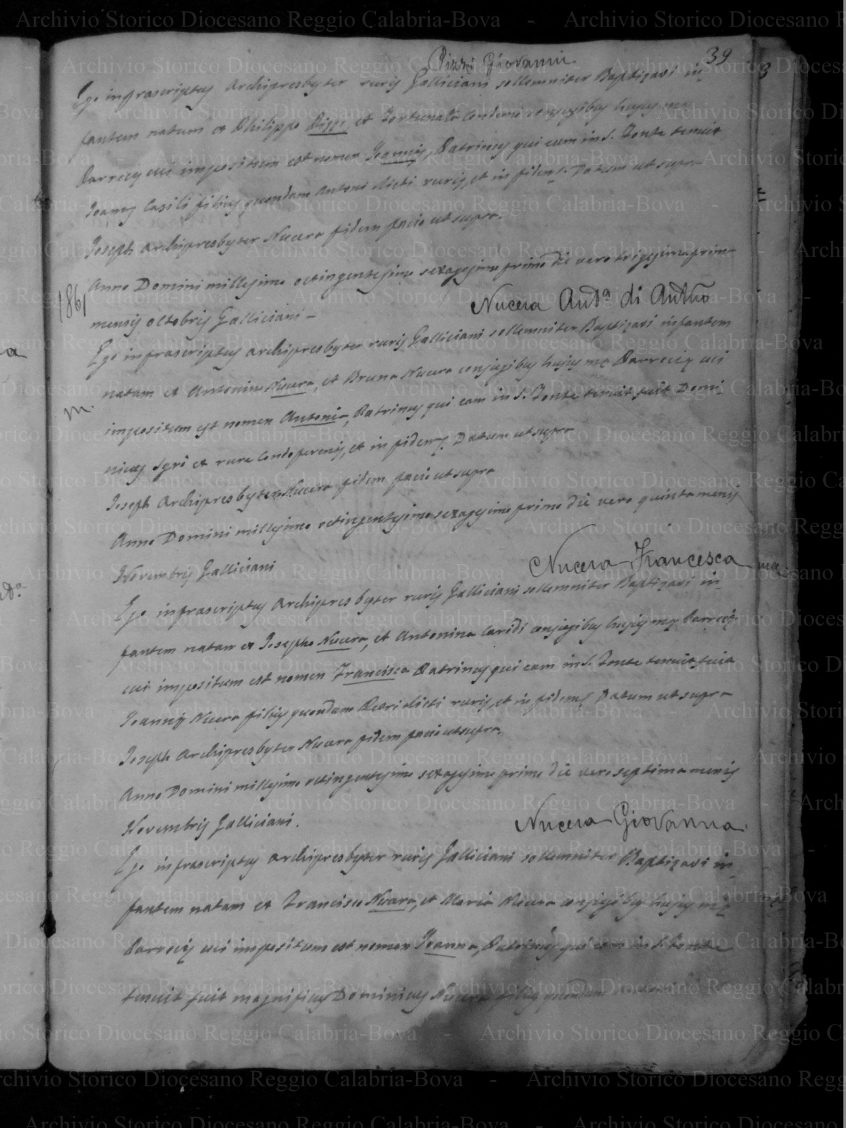 39
Giovanni
Ego infrascriptus Archipresbyter ruris Galliciani sollemniter Baptizavi in-
fantem natum ex Philippo et conjugibus hujus meę
Parrecię cui impositum est nomen Joannis, Patrinus qui eum in S. Fonte tenuit
Joannes filius quondam Antoni dicti ruris, et in fidem. Datum ut supra
Joseph Archipresbyter Nucera fidem facio ut supra.
1861
Anno Domini millesimo octingentesimo sexagesimo primo die vero trigesima prima
mensis octobris Galliciani
Nucera Antª di Antno
Ego infrascriptus Archipresbyter ruris Galliciani sollemniter Baptizavi infantem
natam ex Antonino Nucera, et Bruna Nucera conjugibus hujus mę Parrecię cui
m.
impositum est nomen Antonia, Patrinus qui eam in S. Fonte tenuit fuit Domi-
nicus ex rure et in fidem. Datum ut supra
Joseph Archipresbyter Nucera fidem facio ut supra
Anno Domini millesimo octingentesimo sexagesimo primo die vero quinta mensis
Novembris Galliciani
Nucera Francesca
Ego infrascriptus Archipresbyter ruris Galliciani sollemniter Baptizavi in-
fantem natam ex Josepho Nucera, et Antonina conjugibus hujus mę Parrecię
cui impositum est nomen Francisca Patrinus qui eam in S. Fonte tenuit fuit
Joannes Nucera filius quondam Petri dicti ruris, et in fidem. Datum ut supra
Joseph Archipresbyter Nucera fidem facio ut supra.
Anno Domini millesimo octingentesimo sexagesimo primo die vero septima mensis
Novembris Galliciani.
Nucera Giovanna
Ego infrascriptus Archipresbyter ruris Galliciani sollemniter Baptizavi in-
fantem natam ex Francisco Nucera, et Maria Nucera conjugibus hujus mę
Parrecię cui impositum est nomen Joanna, Patrinus qui eam in S. Fonte
tenuit fuit magnificus Dominicus Nucera filius quondam
Archivio Storico Diocesano Reggio Calabria-Bova